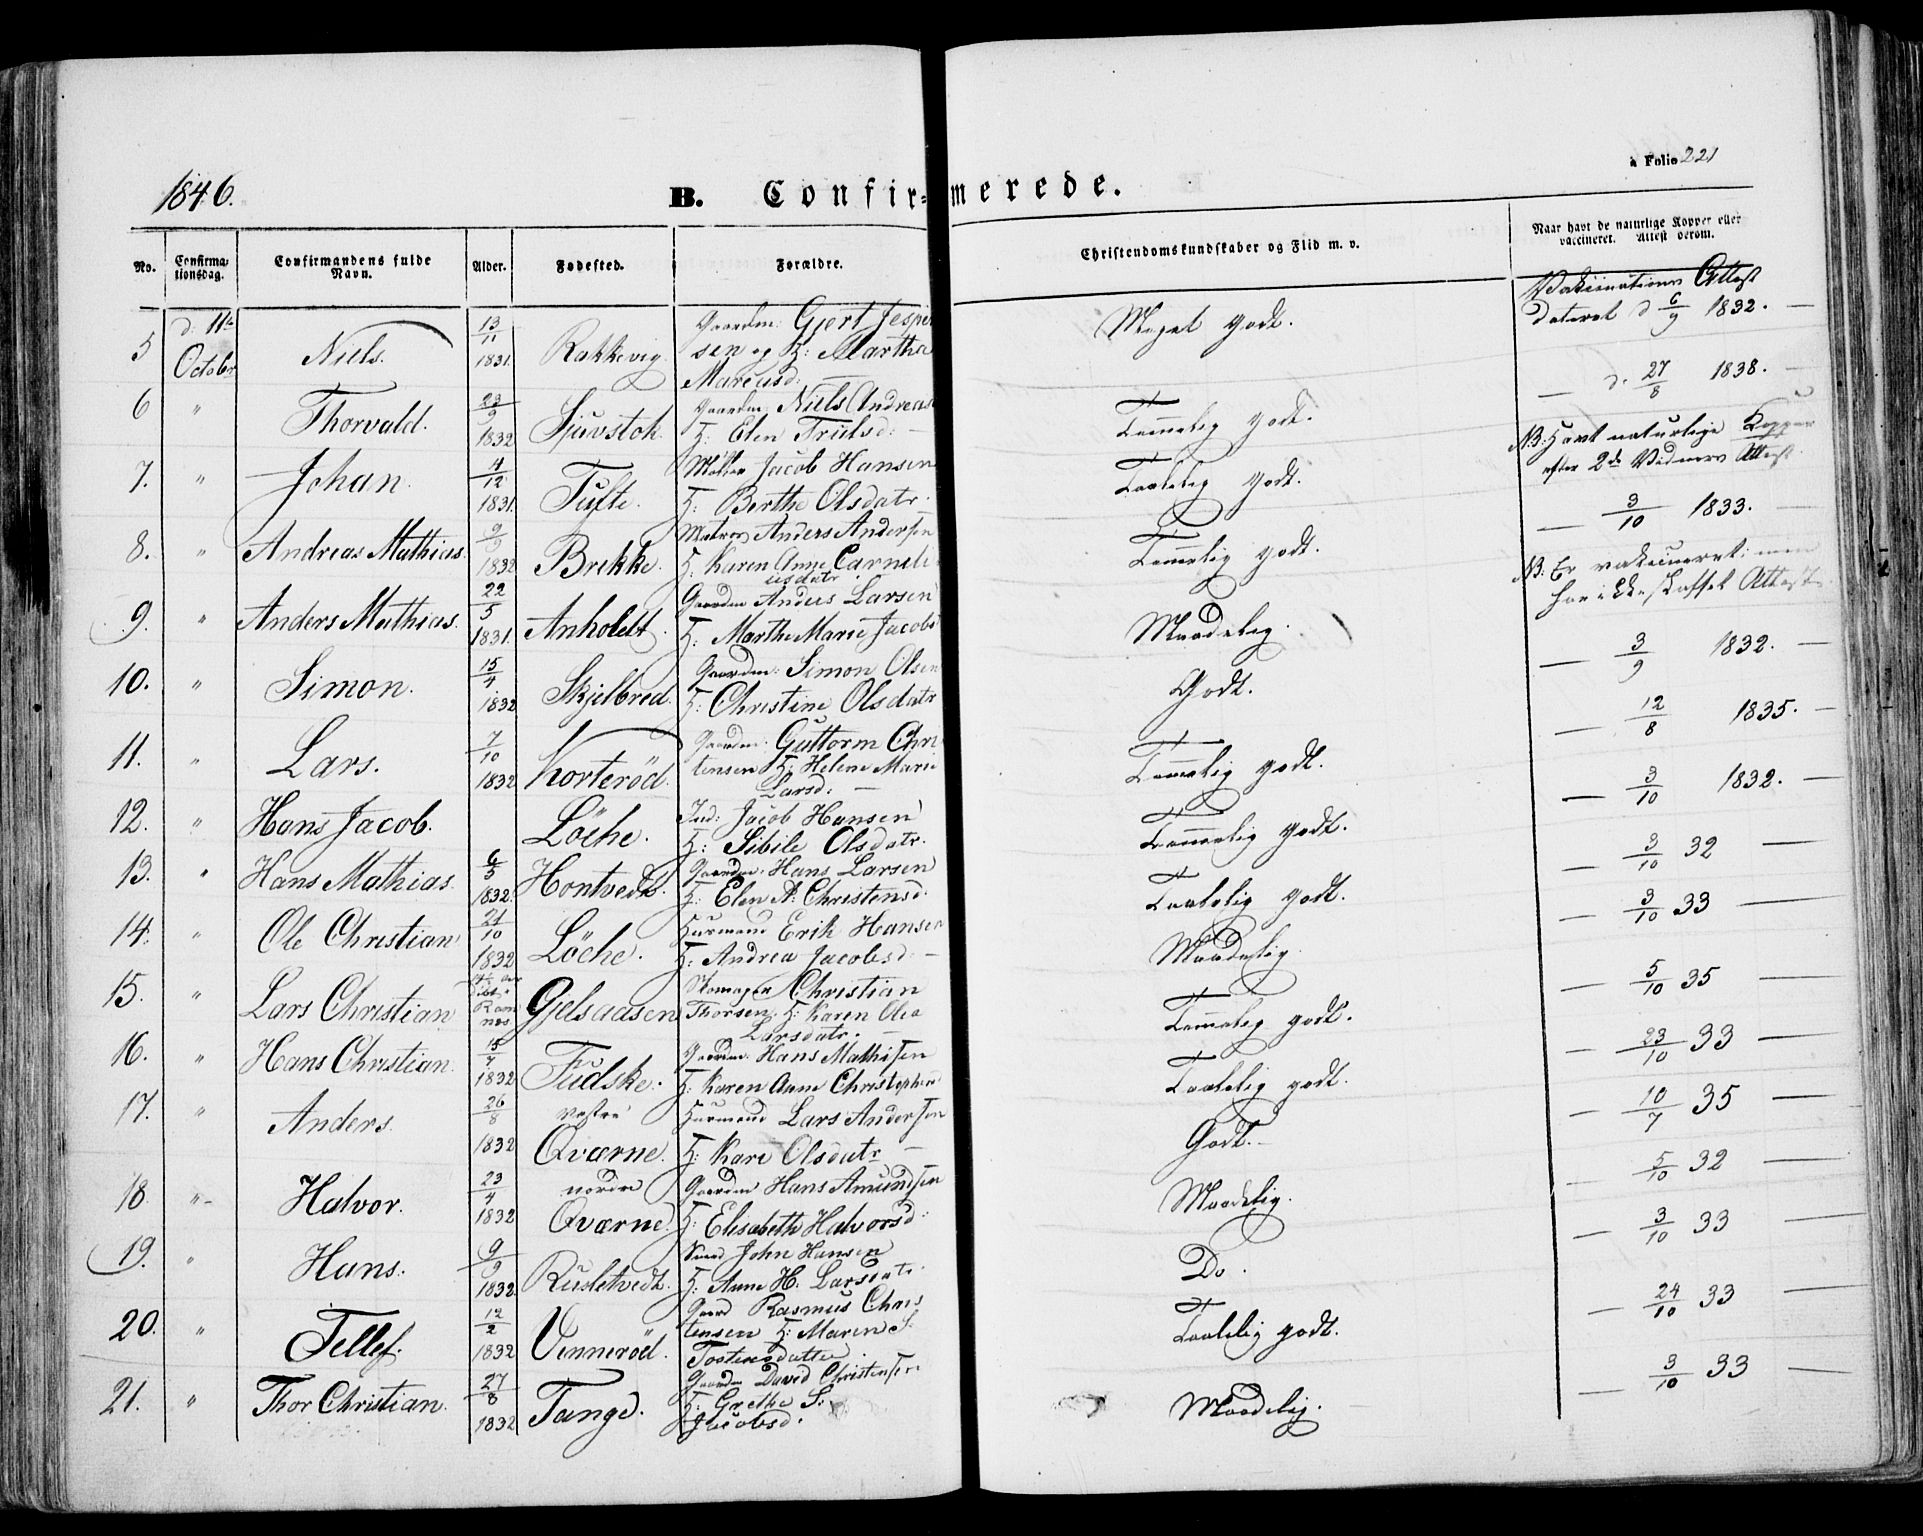 1846.
B. Confirmerede.
a Folio 221
No.
Confirmationsdag.
Confirmandens fulde Navn.
Alder.
Fødested.
Forældre.
Christendomskundskaber og Flid m. v.
Naar havt de naturlige Kopper eller vaccineret. Attest derom.
5 d: 11te October Niels. 13/11 1831. Rakkevig. Gaardm: Gjert Jespersen og H: Martha Mareusd: Meget godt. Vakcinations Attest dateret d 6/9 1832.
6 " Thorvald. 23/9 1832 Sjuvstok Gaardm. Niels Andreas H: Elen Trulsd: Temmelig godt. d: 27/8 1838.
7. " Johan. 4/12 1831. Tufte. Jacob Hansen H: Berthe Olsdatr. Taalelig godt. NB: Havt naturlige Kopper efter 2de Vidners Attest.
8. " Andreas Mathias. 9/9 1832 Brekke. Matros Anders Andersen H: Karen Anne Carneliusdatr Temmelig godt. 3/10 1833.
9. " Anders Mathias. 22/5 1831. Anholdt. Gaardm Anders Larsen H: Marthe Marie Jacobs Maadelig. NB: Er vakcineret: men har ikke skaffet Attest.
10. " Simon. 15/4 1832 Skjelbred. Gaardm: Simon Olsen H: Christine Olsdatr Godt. 3/9 1832.
11. " Lars. 7/10 1832 Korteröd. Gaardm: Guttorm Christensen H: Helene Marie Larsd: Temmelig godt. 12/8 1835.
12. " Hans Jacob. Löche. Ind: Jacob Hansen H: Sibile Olsdatr. Temmelig godt. 3/10 1832.
13. " Hans Mathias. 6/5 1832. Hontvedt. Gaardm: Hans Larsen H: Elen A: Christensd: Taalelig godt. 3/10 32
14. " Ole Christian 21/10 1832 Löche. Huusmand Erik Hansen H: Andrea Jacobsd: Maadelig. 3/10 33
15. " Lars Christian Ramnes Gjelsaasen Skomager Christian Thorsen. H: Karen Olea Larsdatr. Temmelig godt. 5/10 35
16. " Hans Christian. 15/7 1832 Fudske. Gaardm. Hans Mathisen H: Karen Anne Christophersd Taalelig godt. 23/10 33
17. " Anders. 26/8 1832 vestre Qværne. Huusmand Lars Andersen H: Kari Olsdatr Godt. 10/7 35
18 " Halvor. 23/4 1832 nordre Qværne. Gaardm Hans Amundsen H: Elisabeth Halvorsd: Maadelig. 5/10 32
19. " Hans. 9/9 1832 Rusletvedt. John Hansen H: Anne H: Larsdatr. Do. 3/10 33
20. " Tellef. 12/2 1832 Venneröd. Gaard Rasmus Christensen H: Maren S: Tostensdatter Taalelig godt. 24/10 33
21. " Thor Christian. 27/8 1832 Tange. Gaardm David Christensen H: Grethe S: Jacobsd: Maadelig. 3/10 33